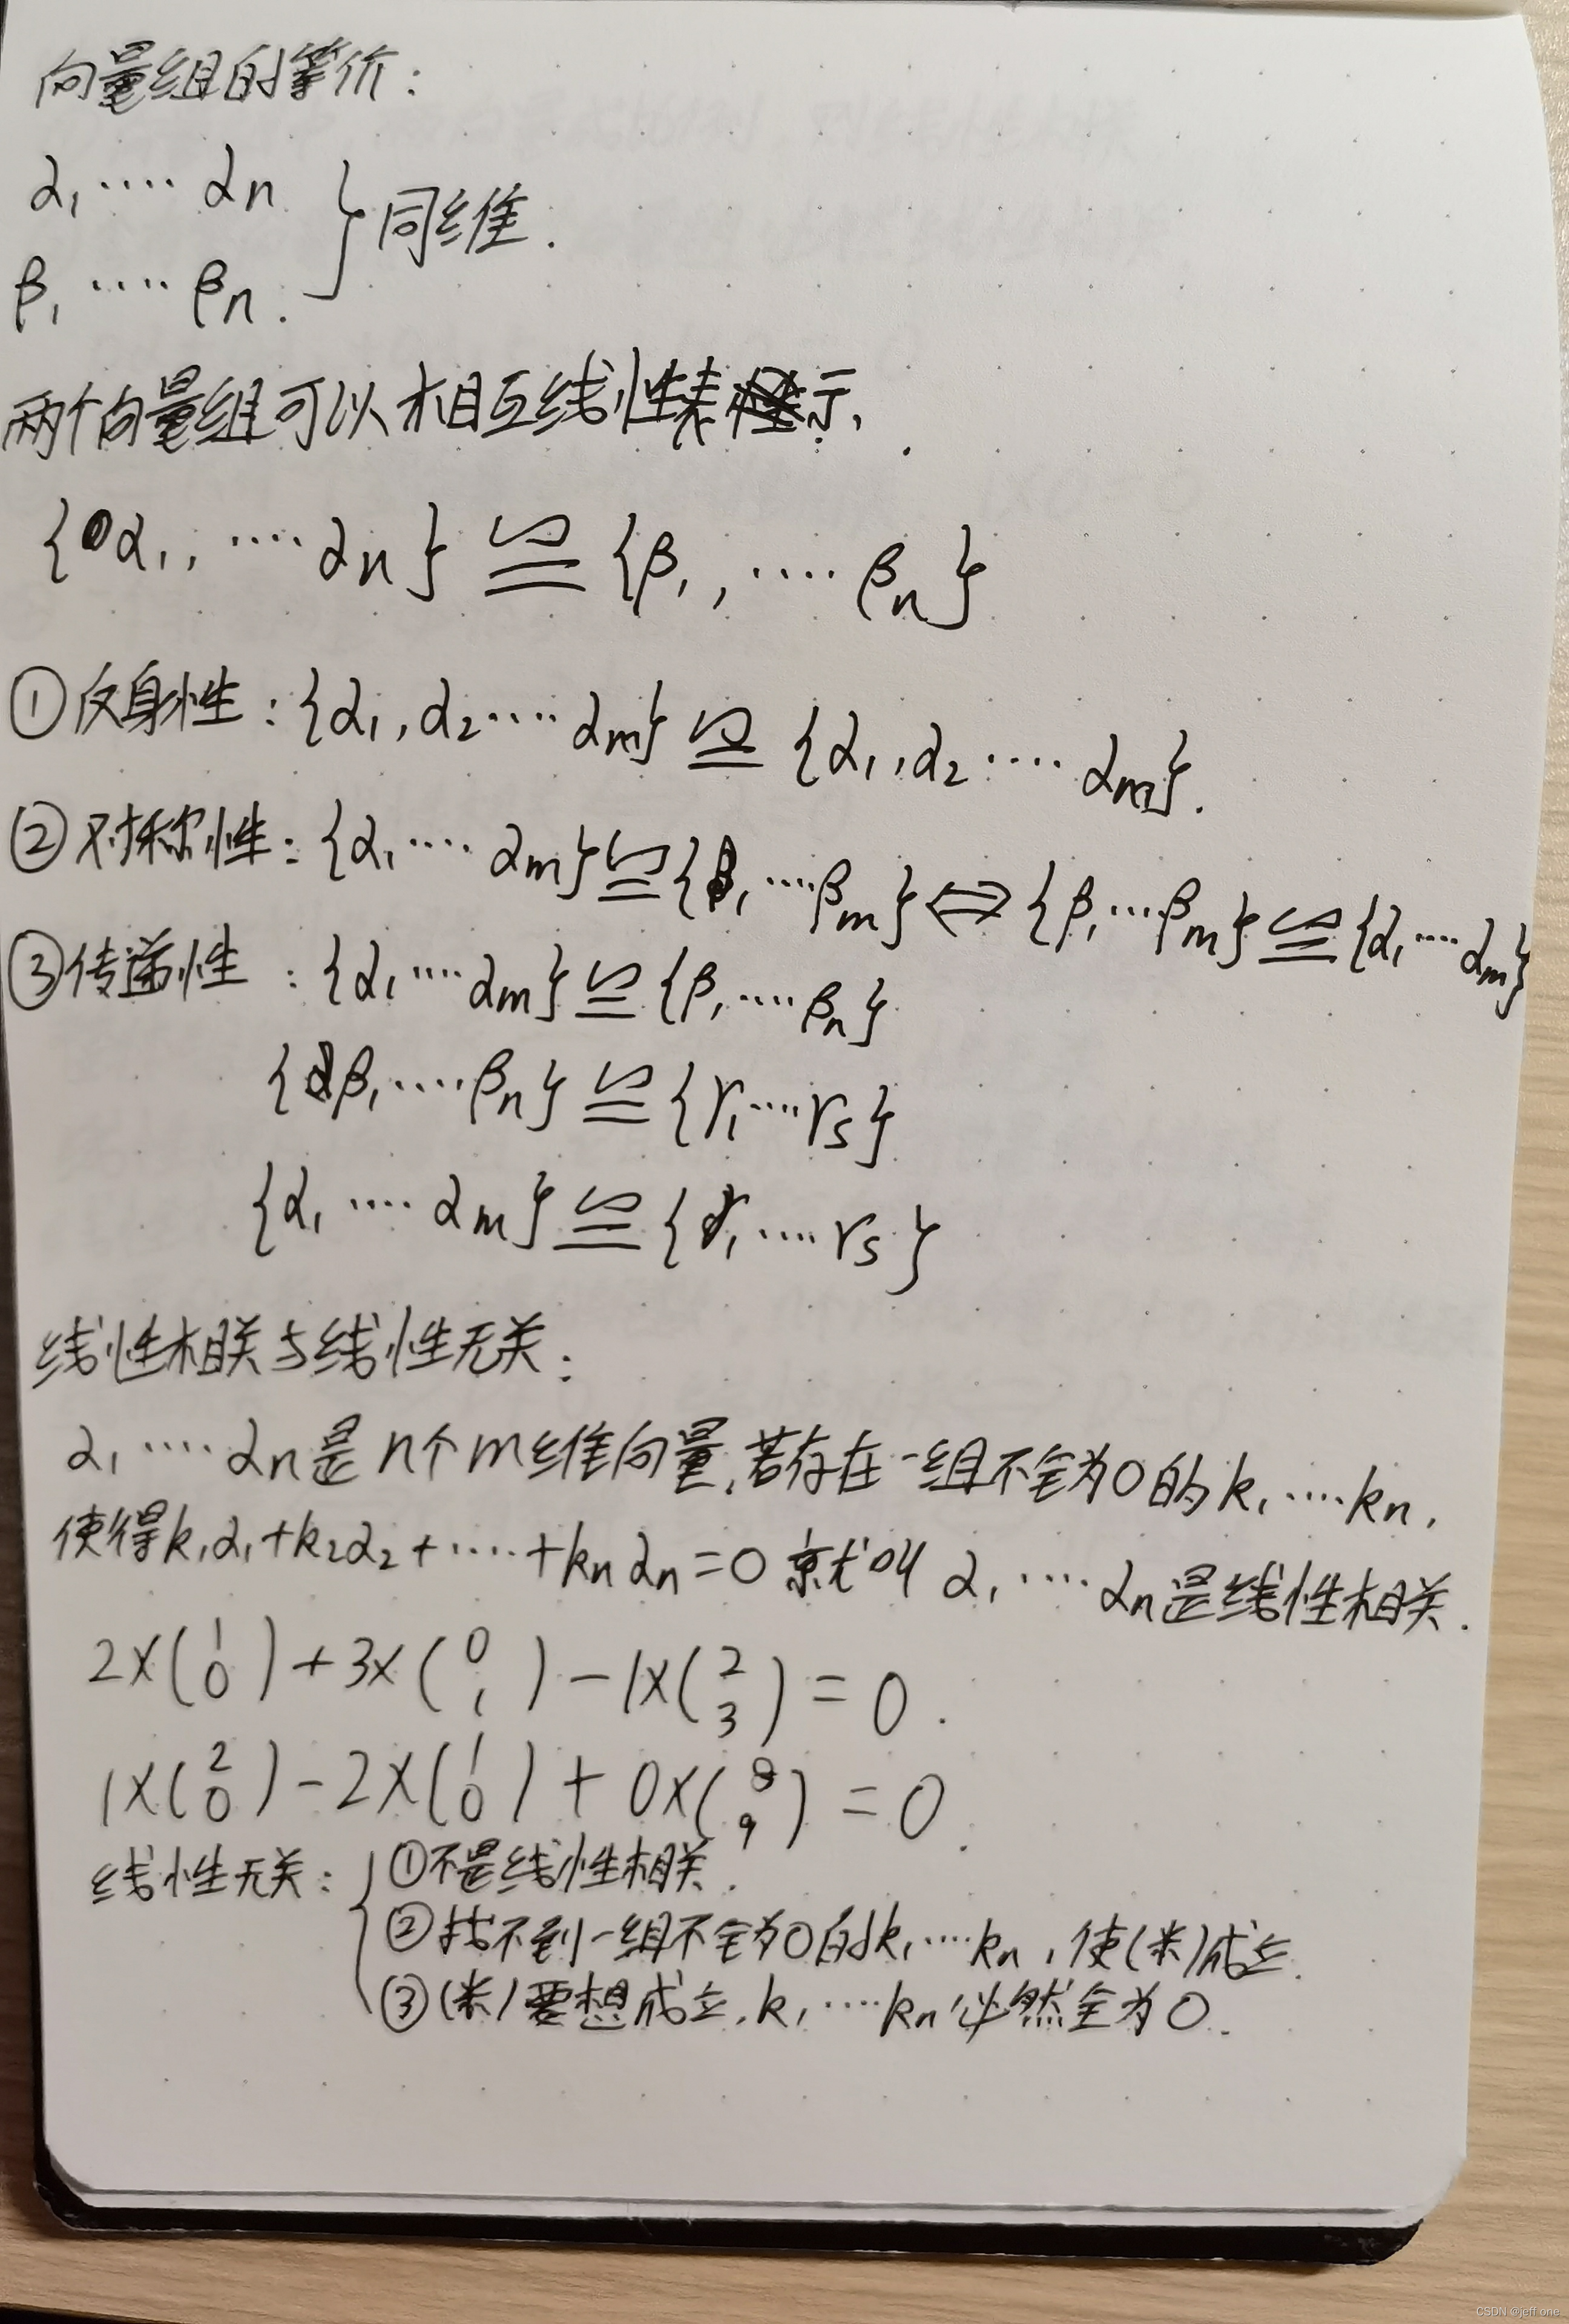 向量组的等价:
α₁ ···· αn
β₁ ···· βn. } 同维.
两个向量组可以相互线性表示.
{α₁, ···· αn} ≌ {β₁, ···· βn}
①反身性: {α₁, α₂ ···· αm} ≌ {α₁, α₂ ···· αm}.
②对称性: {α₁ ···· αm} ≌ {β₁ ···· βm} ⇔ {β₁ ··· βm} ≌ {α₁ ···· αm}
③传递性: {α₁ ···· αm} ≌ {β₁ ···· βn}
{β₁ ···· βn} ≌ {r₁ ···· rs}
{α₁ ···· αm} ≌ {r₁ ···· rs}
线性相关与线性无关:
α₁ ···· αn是n个m维向量,若存在一组不全为0的k₁ ···· kn,
使得k₁α₁+k₂α₂+ ···· +knαn=0 就叫 α₁ ···· αn是线性相关.
2×(1 0)+3×(0 1)-1×(2 3)=0.
1×(2 0)-2×(1 0)+0×(8 9)=0.
线性无关: { ①不是线性相关.
②找不到一组不全为0的k₁ ···· kn,使(※)成立.
③(※)要想成立,k₁ ···· kn必然全为0.
CSDN @jeff one